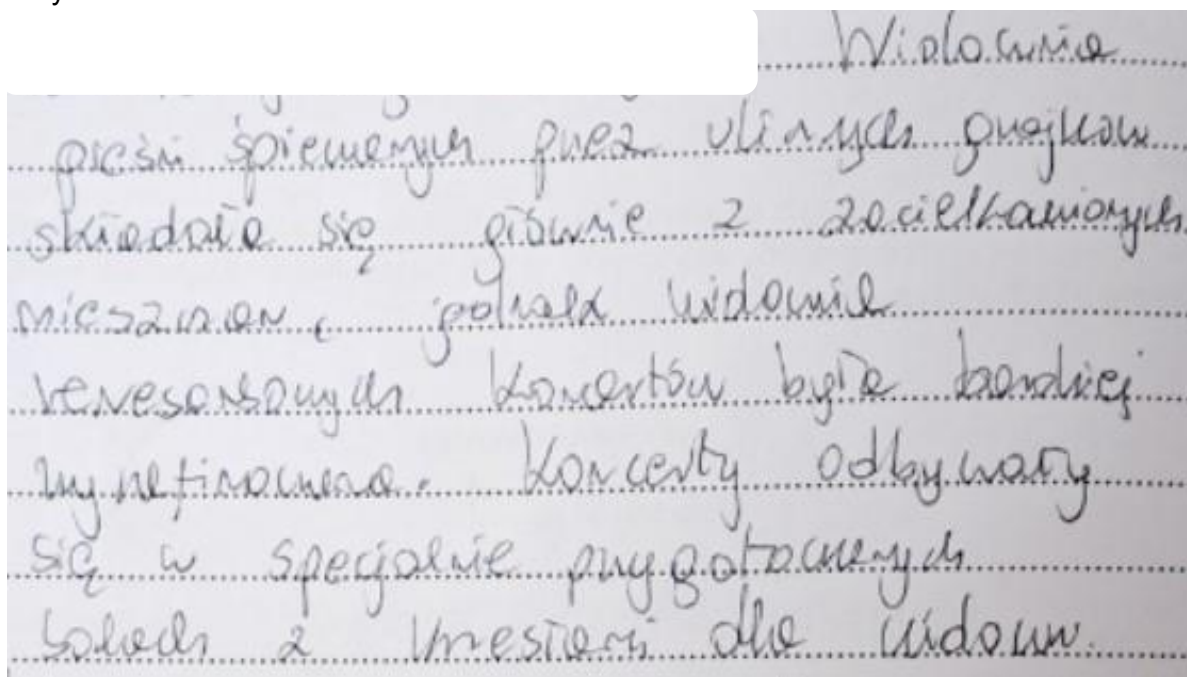 Widownia
pieśni śpiewanych przez ulicznych grajków
składała się głównie z zaciekawionych
mieszczan, jednak widownia
renesansowych koncertów była bardziej
wyrafinowana. Koncerty odbywały
się w specjalnie przygotowanych
salach z krzesłami dla widzów.